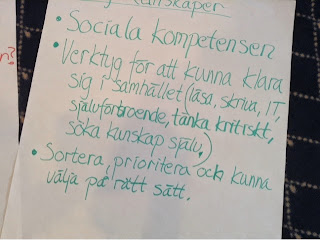 kunskaper
• Sociala kompetensen
• Verktyg för att kunna klara
sig i samhället (läsa, skriva, IT,
självförtroende, tänka kritiskt,
söka kunskap själv.)
• Sortera, prioritera och kunna
välja på rätt sätt.